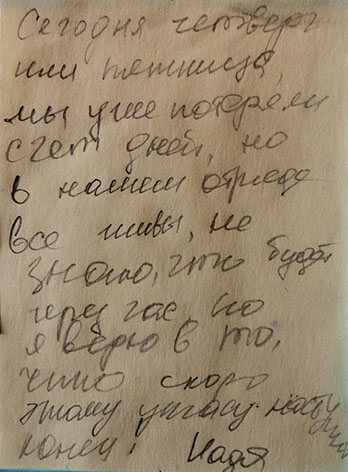 Сегодня четверг
или пятница,
мы уже потеряли
счет дней, но
в нашем отряде
все живы, не
знаю, что будет
через час, но
я верю в то,
что скоро
этому ужасу наступит
конец! Надя